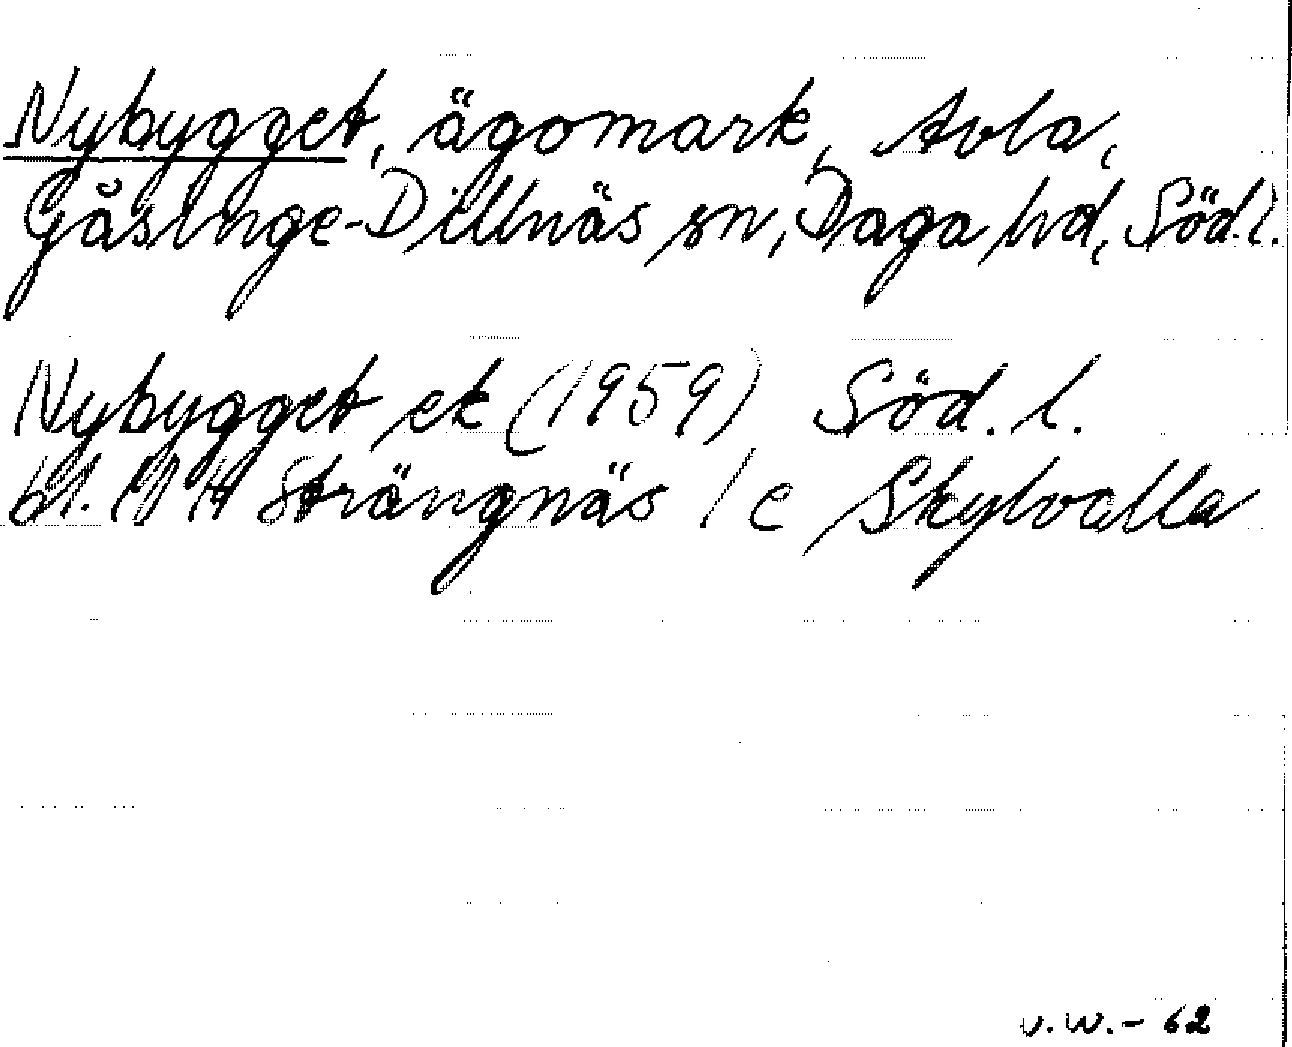 Nybygget, ägomark, Avla,
Gåsinge-Dillnäs sn, Daga hd, Söd.l.
Nybygget ek (1959) Söd. l.
bl. Strängnäs / e Skylvalla
v.w.- 62